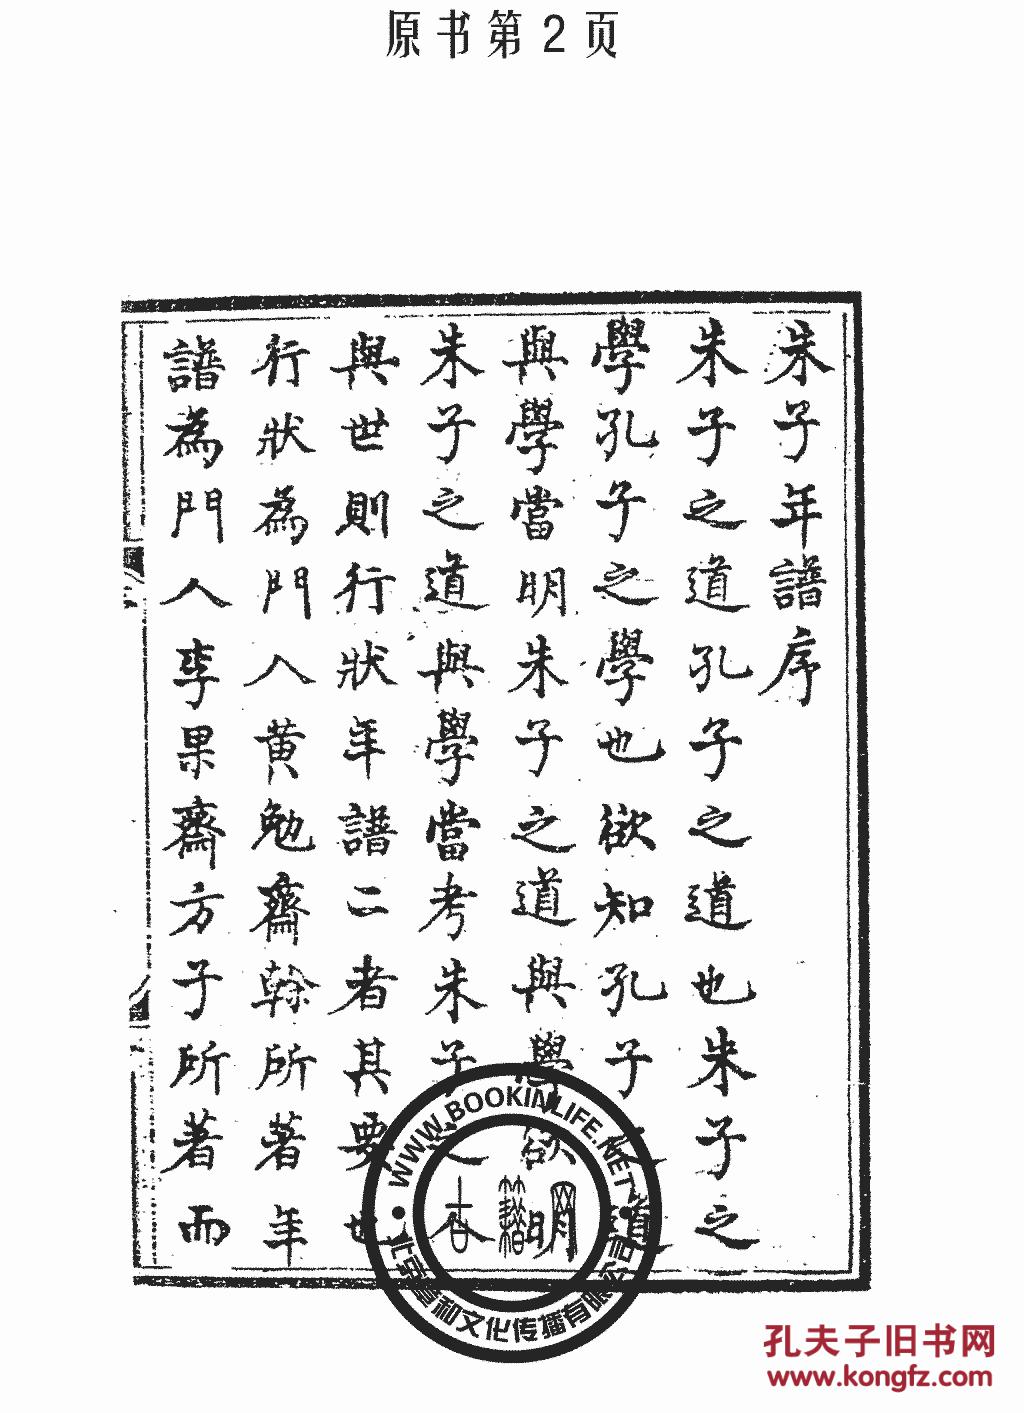 原书第2页
朱子年譜序
朱子之道孔子之道也朱子之
學孔子之學也欲知孔子之道
與學當明朱子之道與學欲明
朱子之道與學當考朱子之
與世則行狀年譜二者其要也
行狀為門人黄勉齋榦所著年
譜為門人李果齋方子所著而
WWW.BOOKINLIFE.NET
和文化传播有限公司
孔夫子旧书网
www.kongfz.com